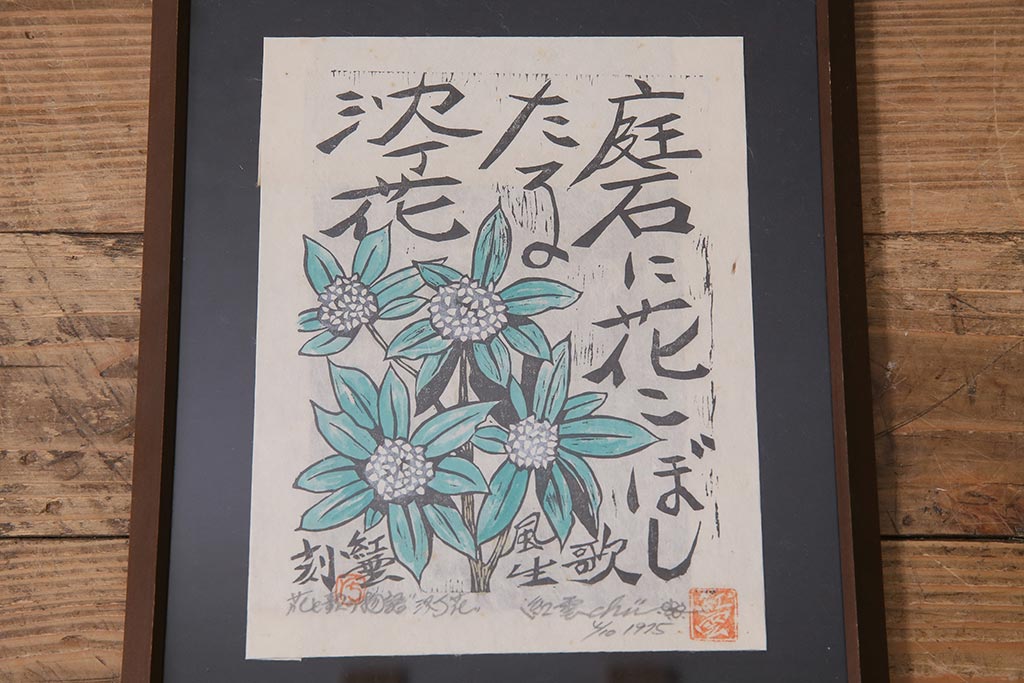 庭石に花こぼし
たるの
沈丁花
歌
風生
紅雲
刻
花と歌の物語 "沈丁花"
4/10 1975